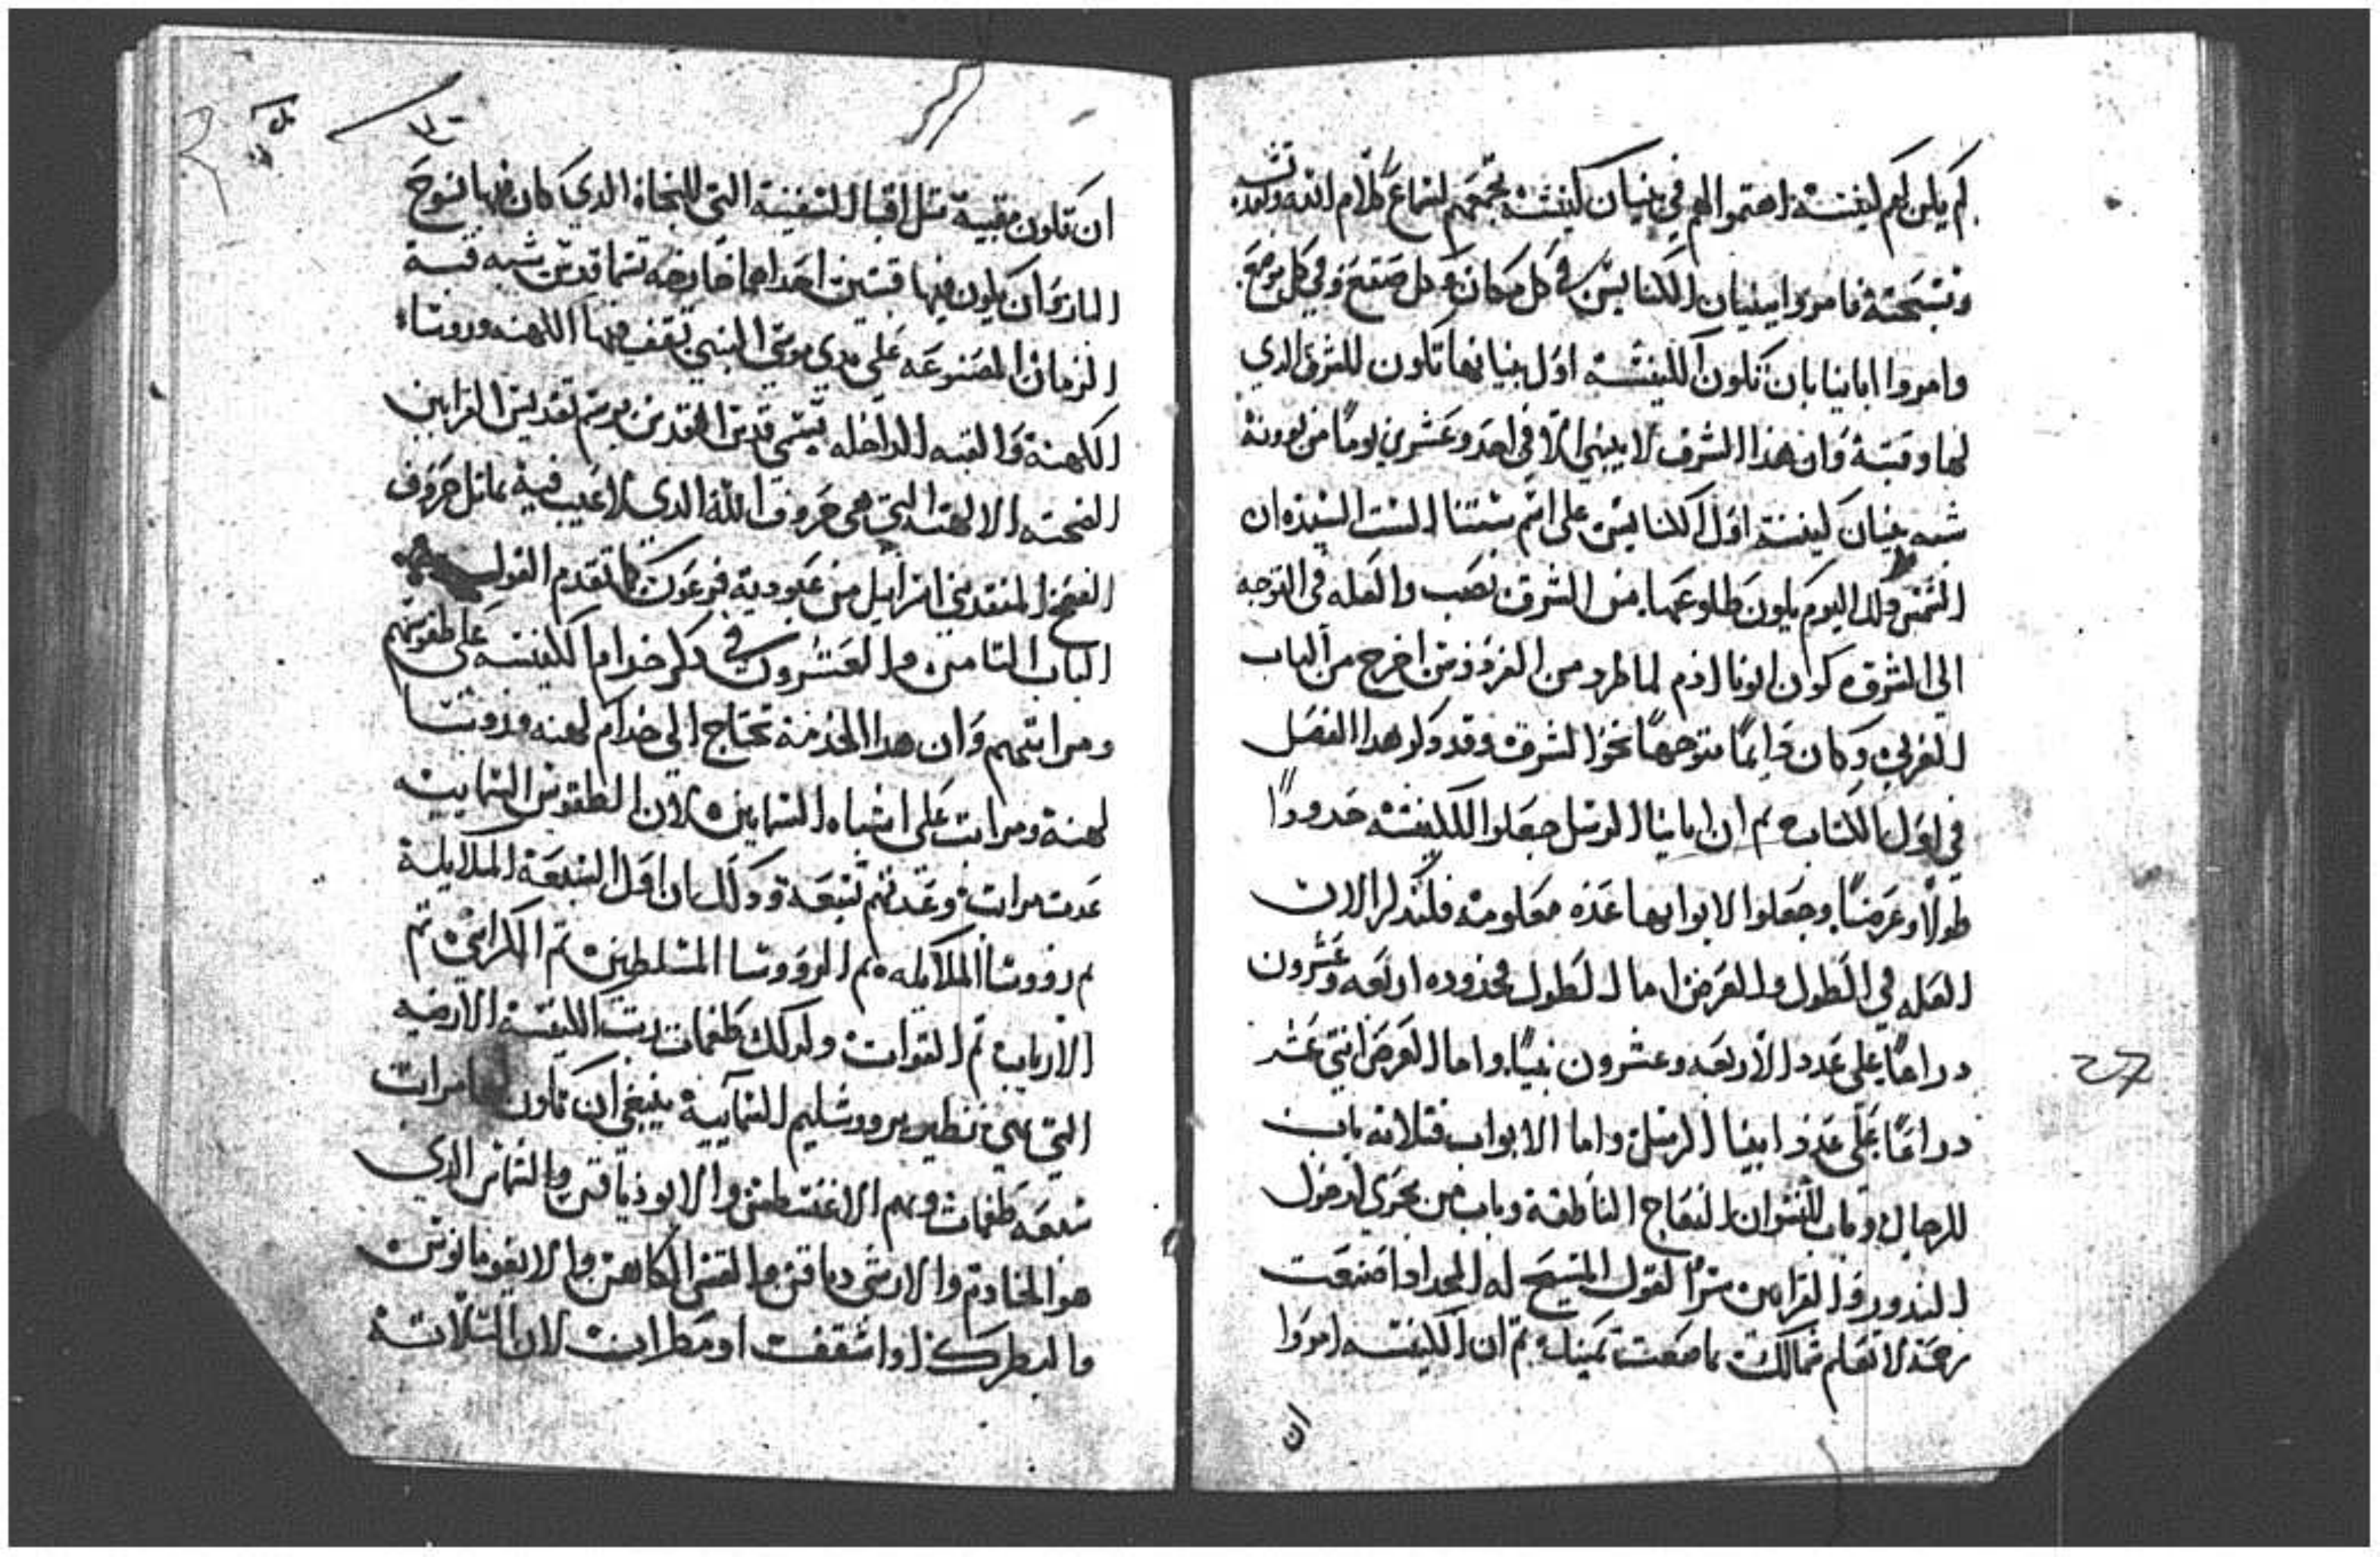 لم يكن لهم كنيسة اهتموا لهم في بنيان كنيسة تجمعهم لسماع كلام الله وتقديسه
وتسبحته فامروا ببنيان الكنايس في كل مكان وكل صقع وفي كل موضع
وامروا ابايتا بان تكون الكنيسة اول بنيانها تكون للشرق الدي
لها وقبة وان هذا الشرق لا يبنى الا في احد وعشرين يوما من بوونه
شبه بنيان كنيسة اول الكنايس على اسم ستنا الست السيده ان
الشمس دلك اليوم يكون طلوعها من الشرق نصب والعله في التوجه
الى الشرق كون ابونا ادم لما طرد من الفردوس اخرج من الباب
الغربي وكان دايما متوجها نحو الشرق وقد دكر هدا الفصل
في اول الكتاب تم ان ابايتا الرسل جعلوا للكنيسة حدودا
طولا وعرضا وجعلوا لابوابها عده معلومه فلندكر الان
العله في الطول والعرض اما الطول محدوده اربعه وعشرون
دراعا على عدد الاربعه وعشرون نبيا واما العرض اتنى عشر
دراعا على عدد ابيتا الرسل واما الابواب فتلاته باب
للرجال وباب للنسوان النعاج الناطقة وباب من بحري لدخول
الندور والقرابين سرا لقول المسيح له المجد ادا صنعت
رحمة لا تعلم شمالك بما صنعت يمينك تم ان الكنيسه امروا
ان
ان تكون مقبية متل اقبا السفينة التي للنجاة الدي كان فيها نوح
البار وان يكون فيها قبتين احداهما خارجه تسما قدس شبه قبة
الزمان المصنوعه على يدي موسى النبي تقف فيها الكهنه وروساء
الكهنة والقبه الداخله تسمى قدس القدس برسم تقديس القرابين
الفصحيه الالهيه التي هي خروف الله الدي لا عيب فيه تماتل خروف
الفصح المنقد بني اسراييل من عبودية فرعون كما تقدم القول
الباب التامن والعشرون في دكر خدام الكنيسه على طقوسهم
ومراتبهم وان هدا الخدمة تحتاج الى خدام كهنه وروسا
كهنة ومراتب على اشباه السمايين لان الطقوس السمايية
عدت مراتب وعدتهم تسعة ودلك ان اول السبعة الملايكة
تم رووسا الملايكه تم الرووسا المسلطين تم الكراسي تم
الارباب تم القوات ولدلك طغمات رتب الكنيسة الارضيه
التي هي نظير يروشليم السمايية ينبغي ان تكون مراتب
سبعه طغمات وهم الاغنسطس والابودياقن والشماس الدي
هو الخادم والارشي دياقن والقس الكاهن والايغومانوس
والبطرك او اسقف او مطران لان التلاتة